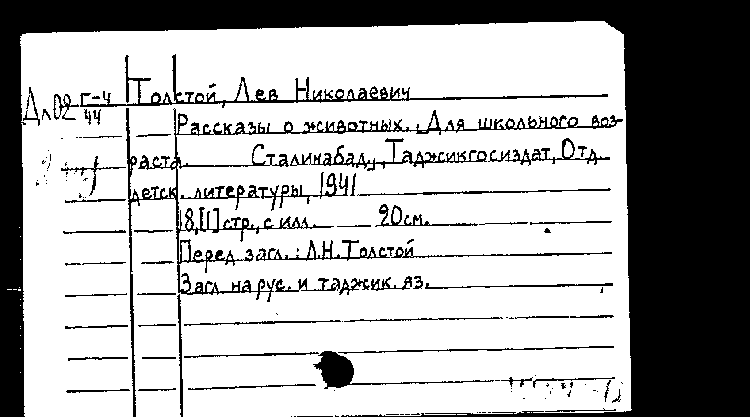 Дл02 Г-4/44 Толстой, Лев Николаевич
Рассказы о животных. Для школьного воз-
раста. Сталинабад, Таджикгосиздат, Отд.
детск. литературы, 1941
18,[1] стр., с илл. 20см.
Перед загл.: Л.Н.Толстой
Загл. на рус. и таджик. яз.